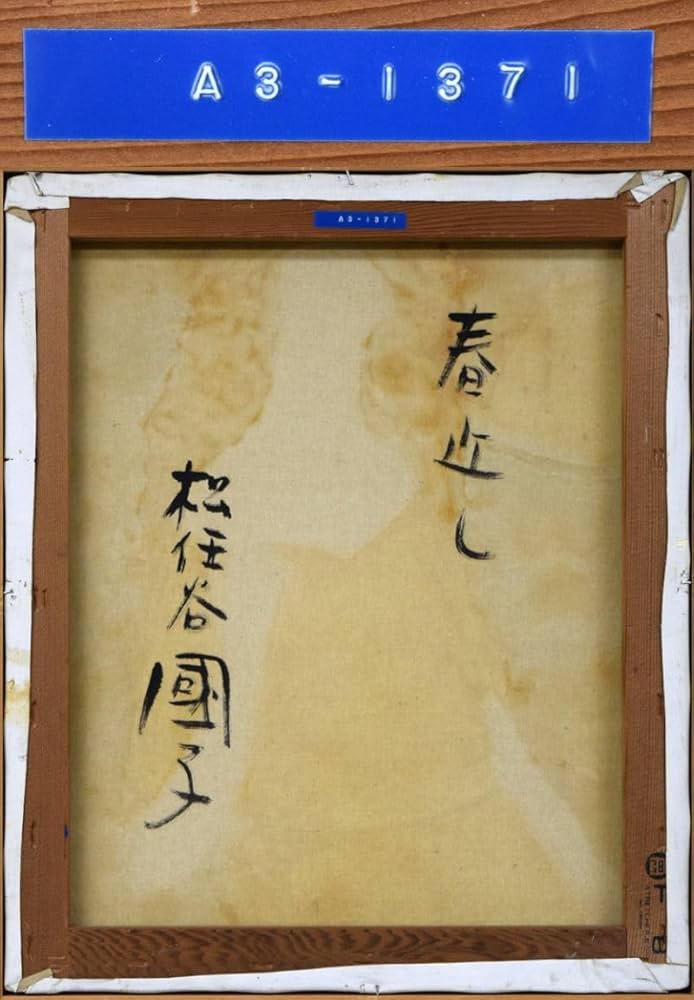 A3-1371
A3-1371
春近し
松任谷國子